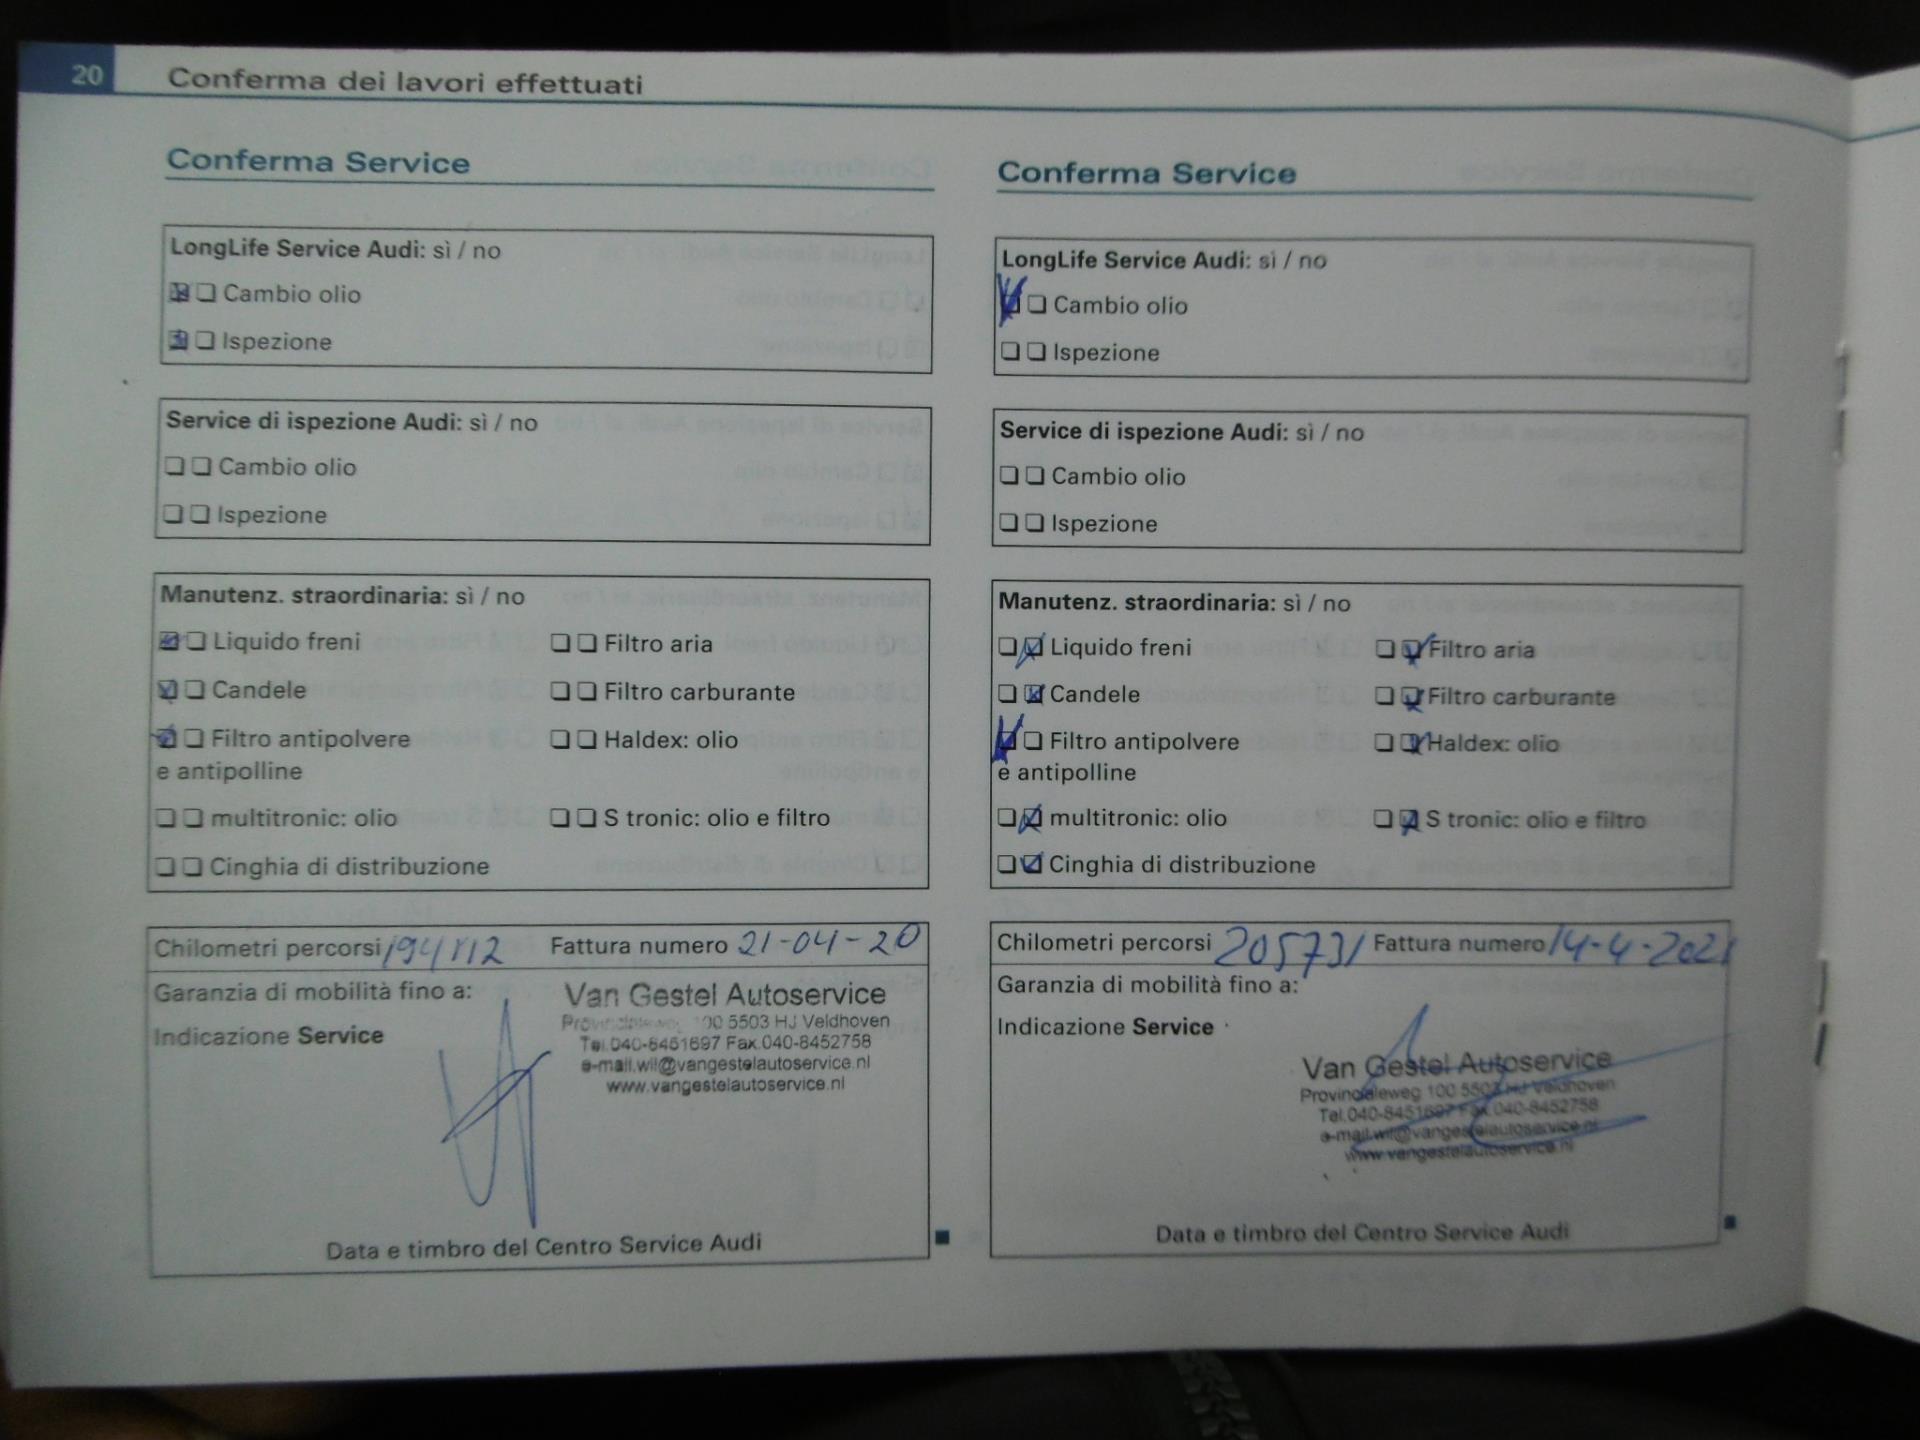 20
Conferma dei lavori effettuati
Conferma Service
LongLife Service Audi: sì / no
Cambio olio
Ispezione
Service di ispezione Audi: sì / no
Cambio olio
Ispezione
Manutenz. straordinaria: sì / no
Liquido freni
Filtro aria
Candele
Filtro carburante
Filtro antipolvere
e antipolline
Haldex: olio
multitronic: olio
S tronic: olio e filtro
Cinghia di distribuzione
Chilometri percorsi 194112
Fattura numero 21-04-20
Garanzia di mobilità fino a:
Indicazione Service
Van Gestel Autoservice
Provincialeweg 100 5503 HJ Veldhoven
Tel.040-8451697 Fax.040-8452758
e-mail.wil@vangestelautoservice.nl
www.vangestelautoservice.nl
Data e timbro del Centro Service Audi
Conferma Service
LongLife Service Audi: sì / no
Cambio olio
Ispezione
Service di ispezione Audi: sì / no
Cambio olio
Ispezione
Manutenz. straordinaria: sì / no
Liquido freni
Filtro aria
Candele
Filtro carburante
Filtro antipolvere
e antipolline
Haldex: olio
multitronic: olio
S tronic: olio e filtro
Cinghia di distribuzione
Chilometri percorsi 205731
Fattura numero 14-4-2021
Garanzia di mobilità fino a:
Indicazione Service
Van Gestel Autoservice
Provincialeweg 100 5503 HJ Veldhoven
Tel.040-8451697 Fax.040-8452758
e-mail.wil@vangestelautoservice.nl
www.vangestelautoservice.nl
Data e timbro del Centro Service Audi